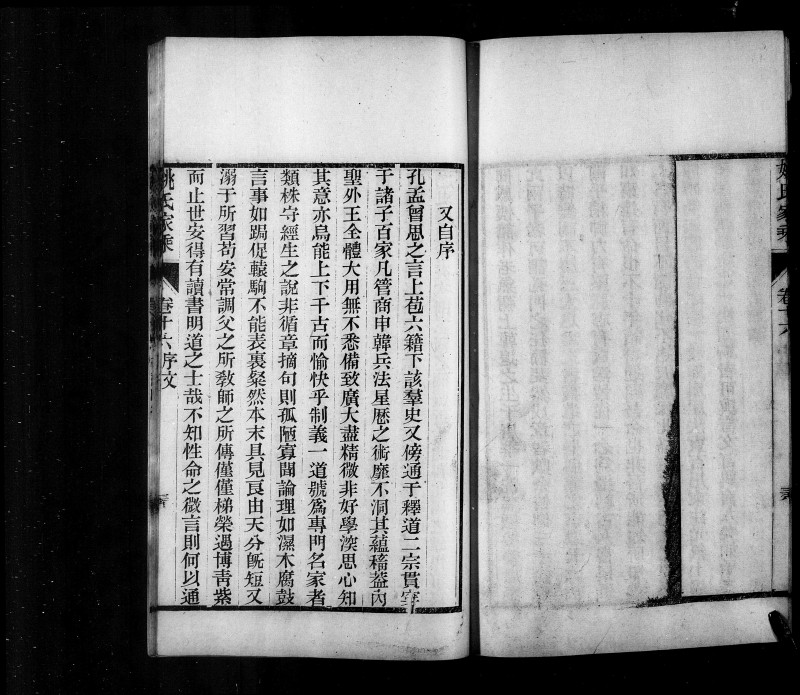 姚氏家乘
卷十六
又自序
孔孟曾思之言上苞六籍下該羣史又傍通于釋道二宗貫穿
于諸子百家凡管商申韓兵法星厯之術靡不洞其蘊稽葢內
聖外王全體大用無不悉備致廣大盡精微非好學湥思心知
其意亦烏能上下千古而愉快乎制義一道號爲專門名家者
類株守經生之說非循章摘句則孤陋寡聞論理如濕木腐鼓
言事如跼促轅駒不能表裏粲然本末具見良由天分旣短又
溺于所習苟安常調父之所敎師之所傳僅僅梯榮遇博靑紫
而止世安得有讀書明道之士哉不知性命之微言則何以通
姚氏家乘
卷十六序文